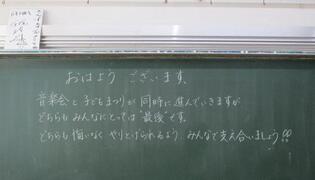 おはよう ございます。
音楽会と 子どもまつりが 同時に 進んでいきますが
どちらも みんなにとっては "最後" です。
どちらも 悔いなく やりとげられるよう、みんなで支え合いましょう!!